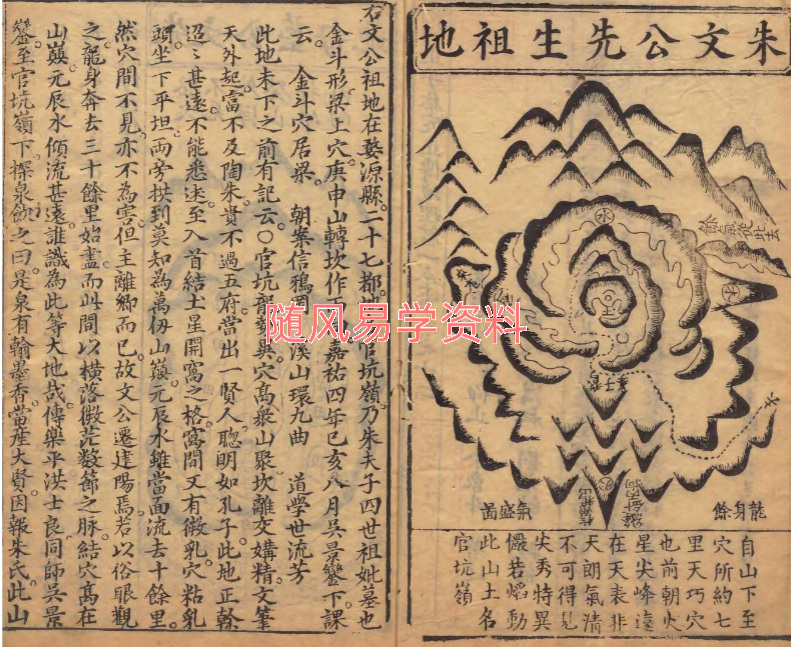 朱文公先生祖地
餘氣從此去
水
龍身餘
氣盛啚
自山下至
穴所約七
里天巧穴
也前朝火
星尖峰遠
在天表非
天朗氣清
不可得見
尖秀特異
儼若焰動
此山土名
官坑嶺
右文公祖地在婺源縣。二十七都。地官坑嶺。乃朱夫子四世祖妣墓也
金斗形。梁上穴。庚申山轉坎作丁嘉祐四年己亥八月吳景鸞下課
云。 金斗穴居梁 朝案信鴉 溪山環九曲 道學世流芳
此地未下之前有記云。○官坑龍勢異。穴高衆山聚。坎離交媾精。文筆
天外起。富不及陶朱。貴不過五府。當出一賢人。聰明如孔子。此地正幹
迢〻甚遠。不能悉述。至入首結土星開窩之格。窩間又有微乳。穴粘乳
頭。坐下平坦。兩旁拱到。莫知為萬仞山巔。元辰水雖當面流去十餘里。
然穴間不見。亦不為害。但主離鄉而已。故文公遷建陽焉。若以俗眼觀
之。龍身奔去三十餘里始盡。而此間以橫落微茫數節之脉。結穴高在
山巔。元辰水傾流甚遠。誰識為此等大地哉。傳樂平洪士良。同師吳景
鸞。至官坑嶺下。掬泉飲之曰。是泉有翰墨香。當産大賢。因報朱氏。此山
随风易学资料